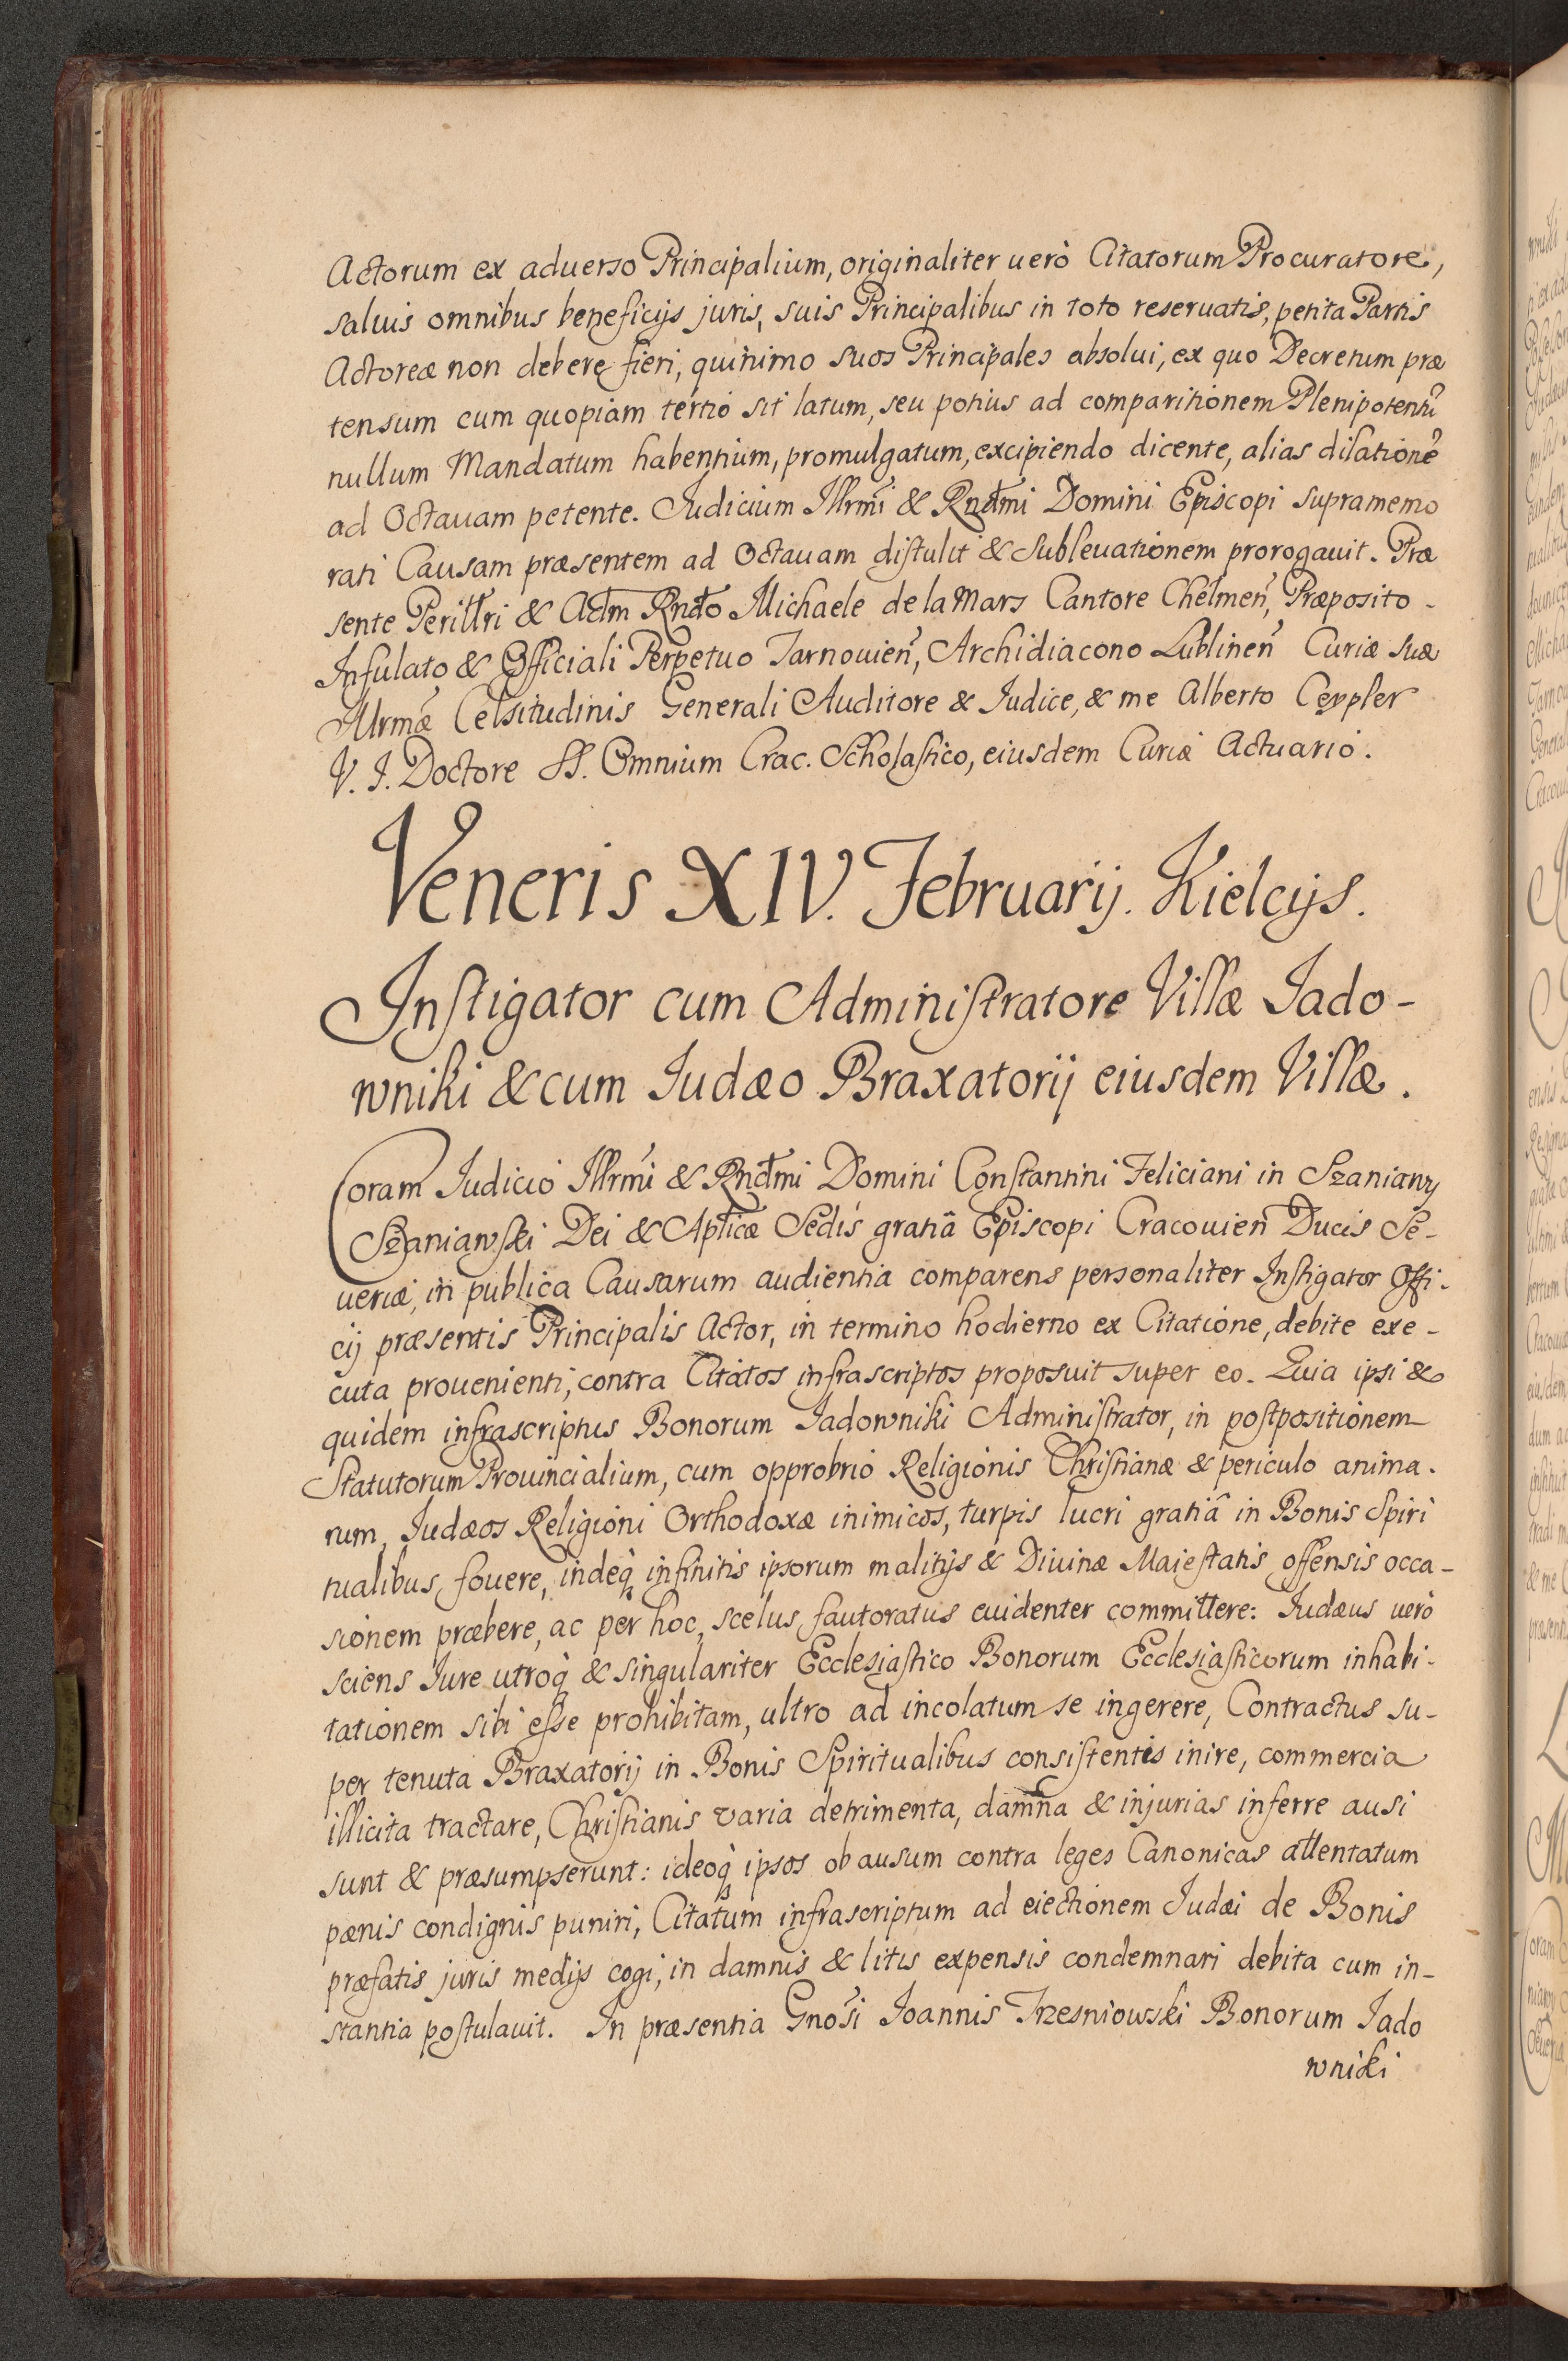 Actorum ex aduerso Principalium, originaliter uerò Citatorum Procuratore,
saluis omnibus beneficijs juris, suis Principalibus in toto reseruatis, petita Partis
Actoreæ non debere fieri, quinimo suos Principales absolui, ex quo Decretum præ
tensum cum quopiam tertio sit latum, seu potius ad comparitionem Plenipotentiũ
nullum Mandatum habentium, promulgatum, excipiendo dicente, alias dilationẽ
ad Octauam petente. Judicium Illrmi & Rndmi Domini Episcopi supramemo
rati Causam præsentem ad Octauam distulit & Subleuationem prorogauit. Præ
sente Perillri & Adm Rndo Michaele de la Mars Cantore Chelmen, Præposito -
Infulato & Officiali Perpetuo Tarnouien, Archidiacono Lublinen Curiæ suæ
Illrmæ Celsitudinis Generali Auditore & Iudice, & me Alberto Ceypler
V. J. Doctore SS. Omnium Crac. Scholastico, eiusdem Curiæ Actuario.
Veneris XIV. Februarij. Kielcijs.
Instigator cum Administratore Villæ Jado-
wniki & cum Iudæo Braxatorij eiusdem Villæ.
Coram Iudicio Illrmi & Rndmi Domini Constantini Feliciani in Szaniawy
Szaniawski Dei & Aplicæ Sedis gratiâ Episcopi Cracouien Ducis Se-
ueriæ, in publica Causarum audientia comparens personaliter Instigator Offi-
cij præsentis Principalis Actor, in termino hodierno ex Citatione, debite exe-
cuta prouenienti, contra Citatos infrascriptos proposuit super eo. Quia ipsi &
quidem infrascriptus Bonorum Jadowniki Administrator, in postpositionem
Statutorum Prouincialium, cum opprobrio Religionis Christianæ & periculo anima-
rum, Iudæos Religioni Orthodoxæ inimicos, turpis lucri gratiâ in Bonis Spiri
tualibus fouere, indeq̀ infinitis ipsorum malitijs & Diuinæ Maiestatis offensis occa-
sionem præbere, ac per hoc, scelus fautoratus euidenter committere: Iudæus uerò
sciens Iure utroq̀ & singulariter Ecclesiastico Bonorum Ecclesiasticorum inhabi-
tationem sibi esse prohibitam, ultro ad incolatum se ingerere, Contractus su-
per tenuta Braxatorij in Bonis Spiritualibus consistentis inire, commercia
illicita tractare, Christianis varia detrimenta, damna & injurias inferre ausi
sunt & præsumpserunt: ideoq̀ ipsos ob ausum contra leges Canonicas attentatum
pænis condignis puniri, Citatum infrascriptum ad eiectionem Judæi de Bonis
præfatis juris medijs cogi, in damnis & litis expensis condemnari debita cum in-
stantia postulauit. In præsentia Gnosi Joannis Trzesniowski Bonorum Jado
wniki